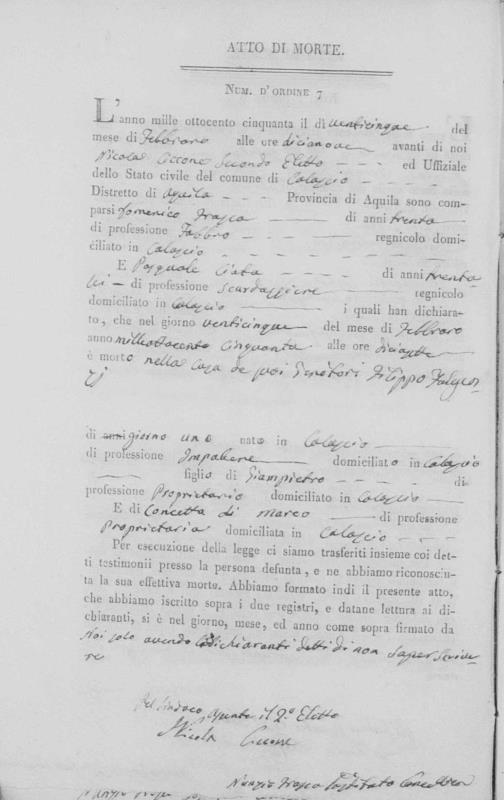 ATTO DI MORTE.
NUM. D'ORDINE 7
L'anno mille ottocento cinquanta il dì venticinque del
mese di Febbraro alle ore diecianove avanti di noi
Nicola Ciccone Secondo Eletto - - - ed Uffiziale
dello Stato civile del comune di Calascio
Distretto di Aquila - - - Provincia di Aquila sono com-
parsi Domenico Frasca di anni trenta
di professione Fabbro regnicolo domi-
ciliato in Calascio
E Pasquale - - - - di anni trenta
sei - di professione scardassiere regnicolo
domiciliato in Calascio i quali han dichiara-
to, che nel giorno venticinque del mese di Febbraro
anno milleottocento cinquanta alle ore diciasette
è morto nella casa de suoi Genitori Filippo
di anni giorno uno nato in Calascio
di professione domiciliato in Calascio
figlio di Giampietro - - - - di
professione Proprietario domiciliato in Calascio
E di Concetta di Marco di professione
Proprietaria domiciliata in Calascio - - -
Per esecuzione della legge ci siamo trasferiti insieme coi det-
ti testimonii presso la persona defunta, e ne abbiamo riconosciu-
ta la sua effettiva morte. Abbiamo formato indi il presente atto,
che abbiamo iscritto sopra i due registri, e datane lettura ai di-
chiaranti, si è nel giorno, mese, ed anno come sopra firmato da
Noi solo avendo i dichiaranti detto di non saper scrive-
re
Pel Sindaco il 2.o Eletto
Nicola Ciccone
Nunzio Frasca Sostituto Cancelliere
Nunzio Frasca